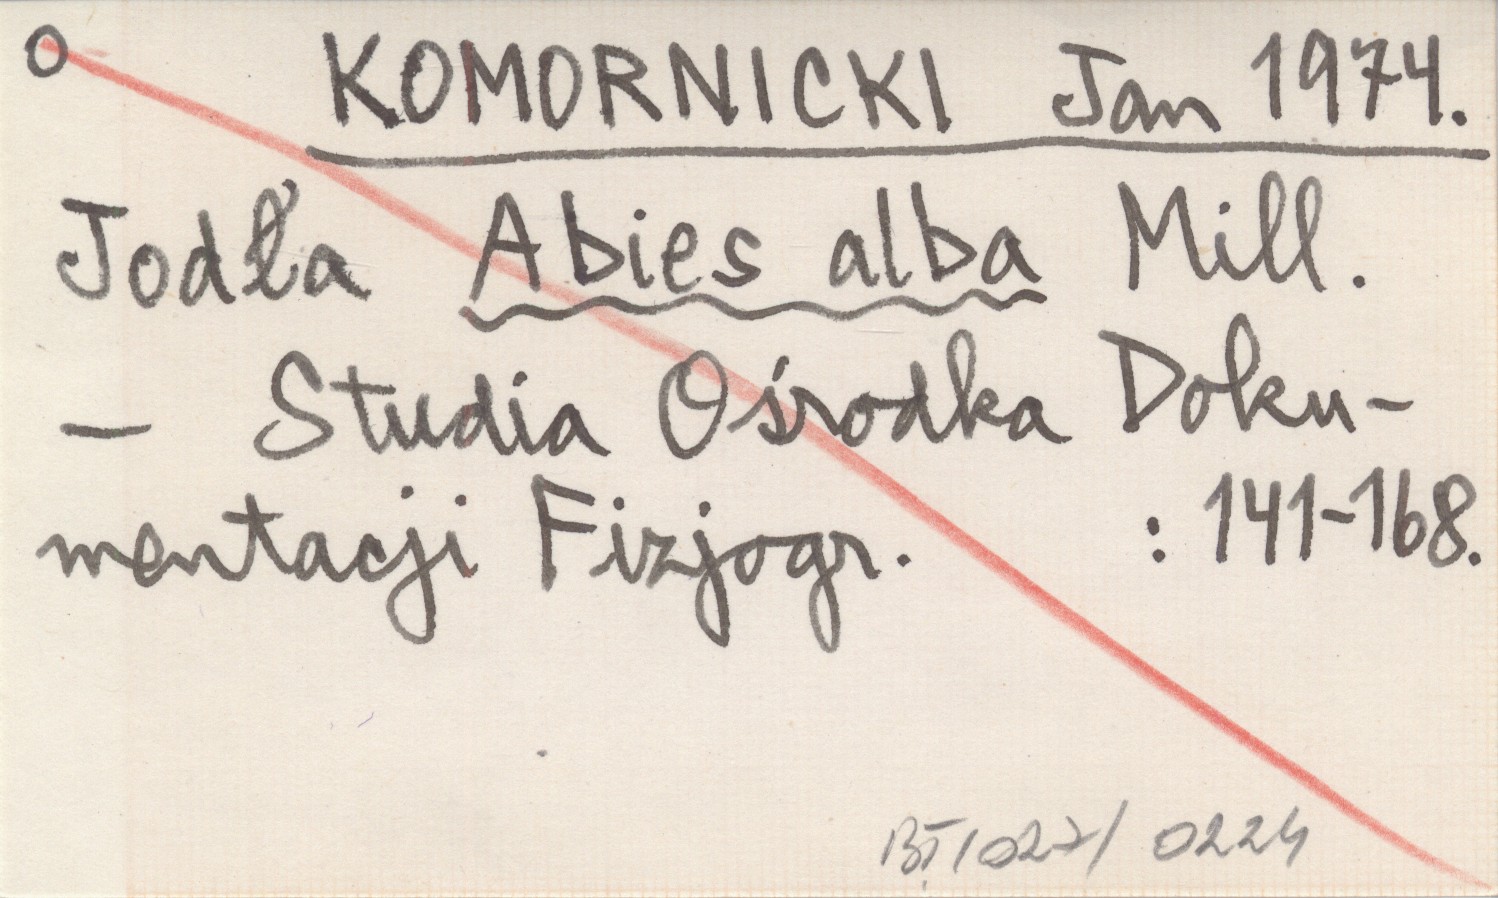 o KOMORNICKI Jan 1974.
Jodła Abies alba Mill.
— Studia Ośrodka Doku-
mentacji Fizjogr. : 141-168.
0224